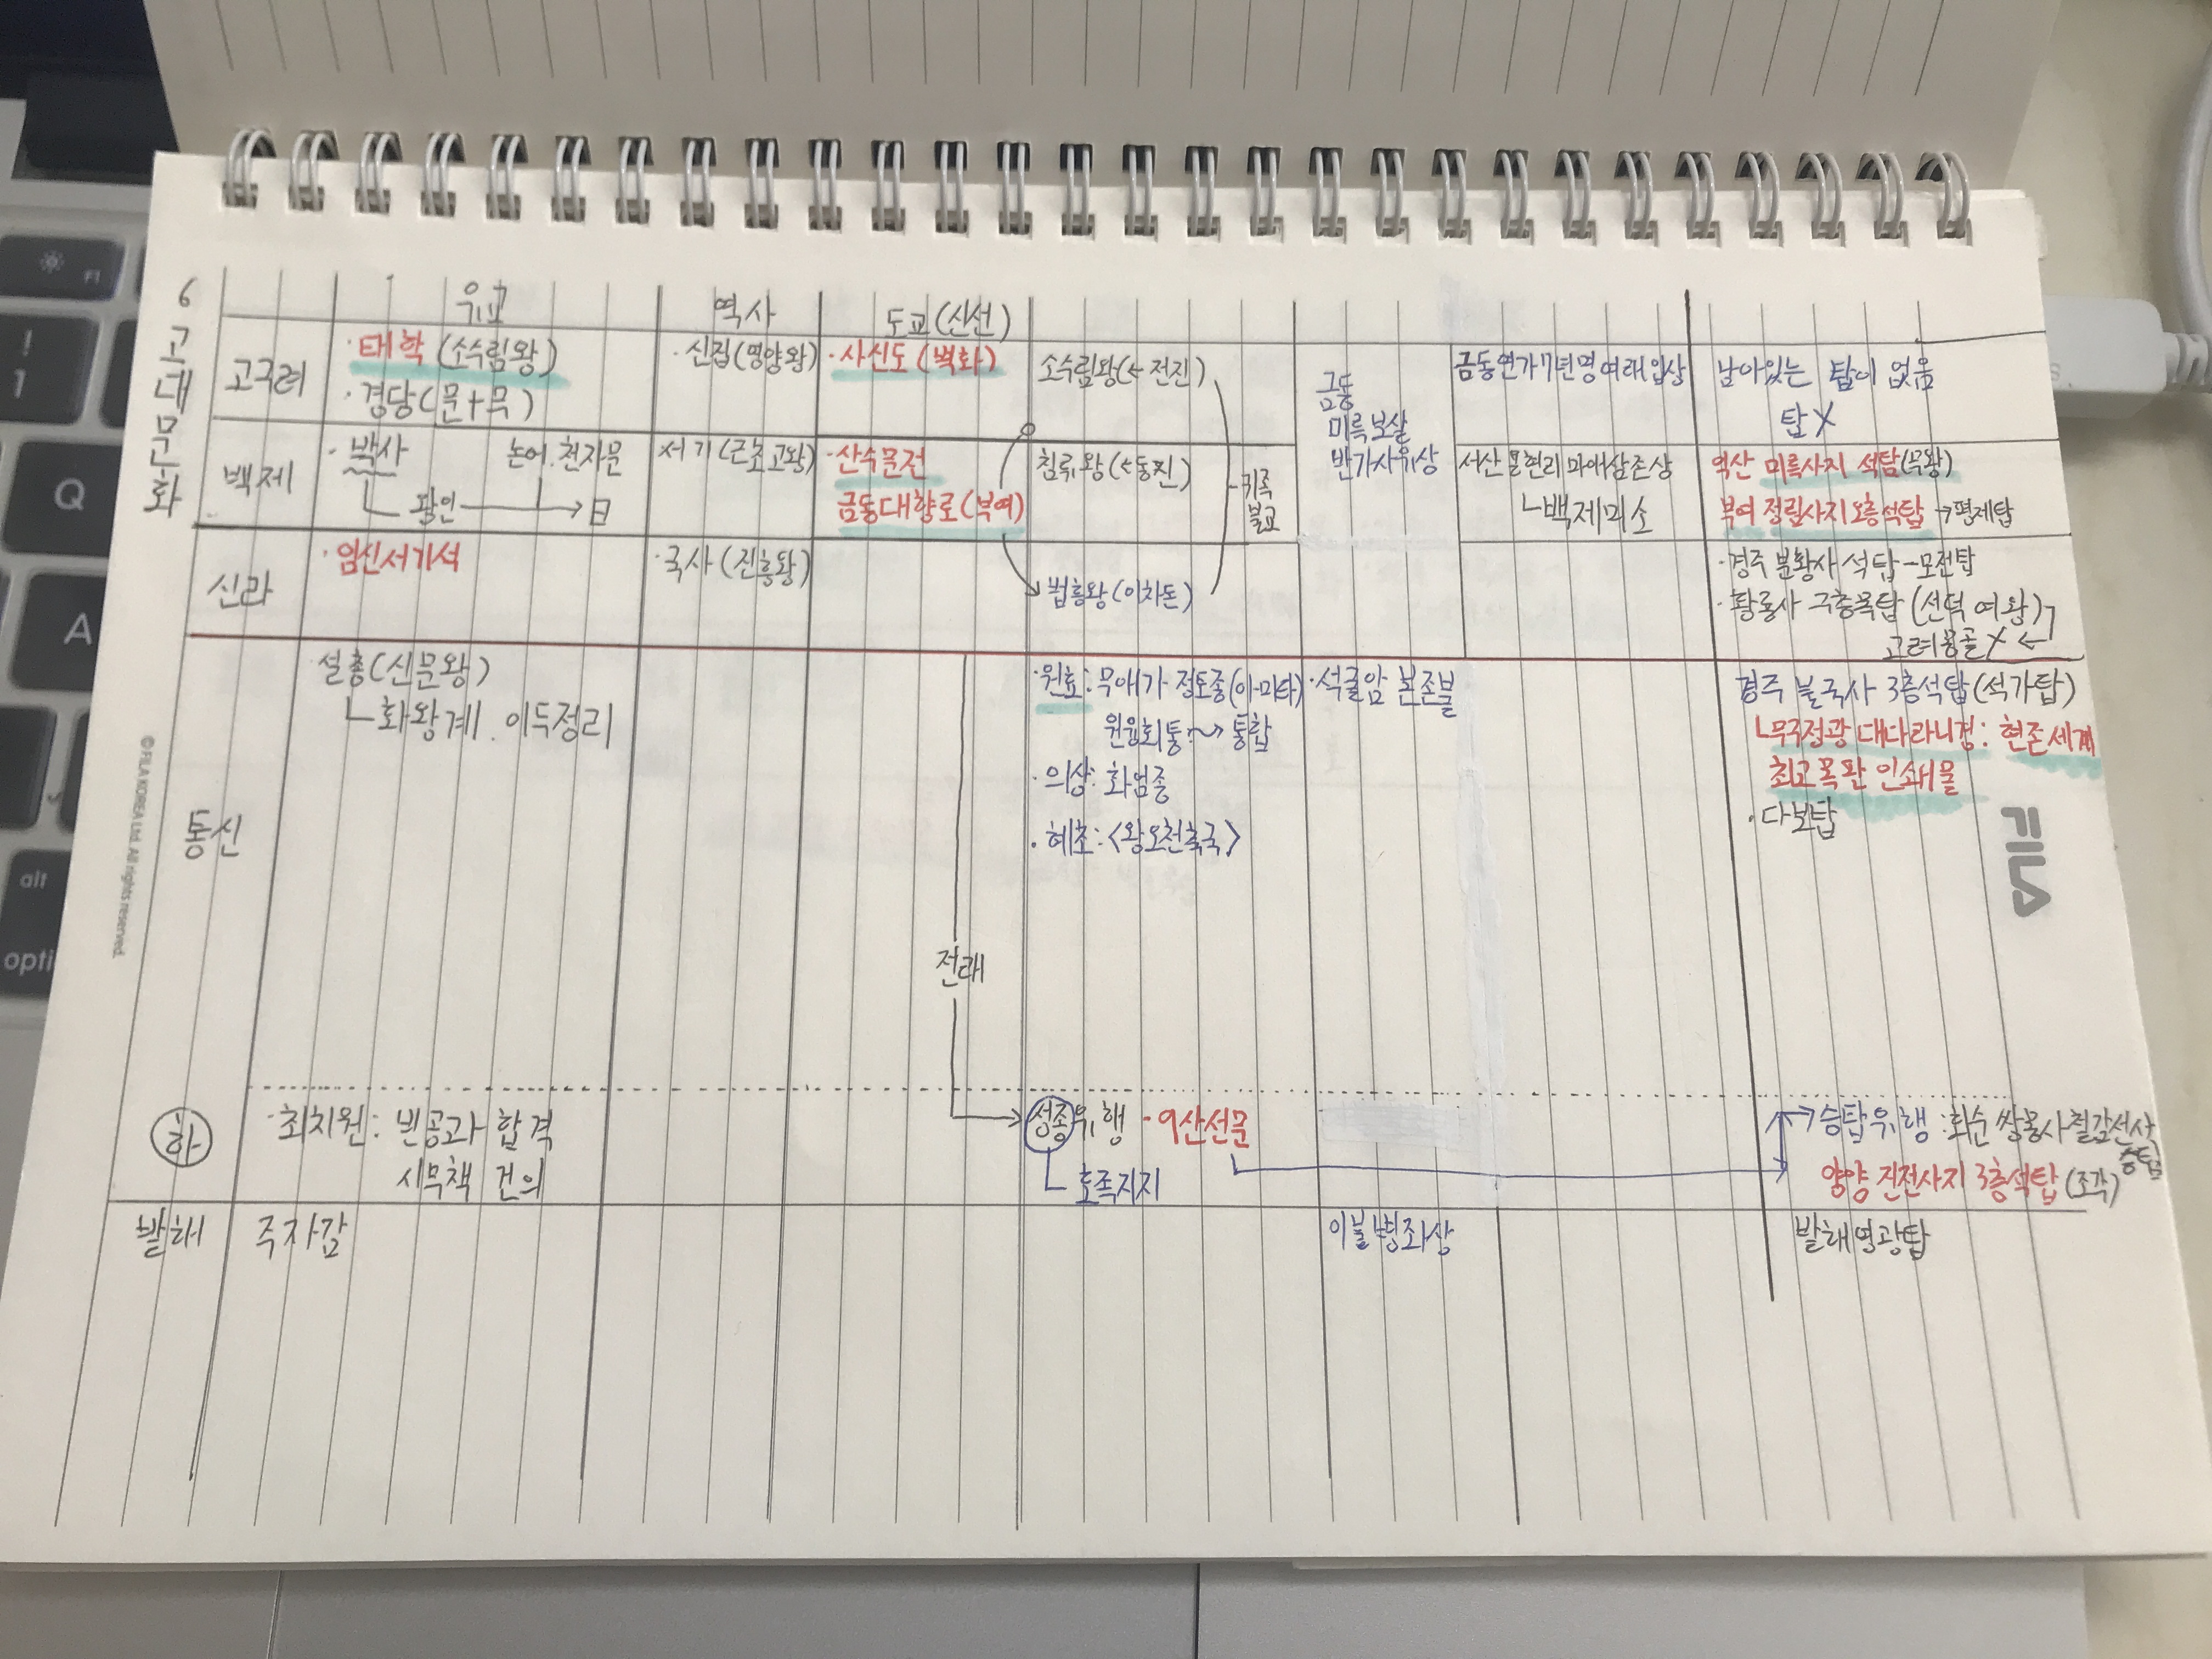 6 고대문화
유교
역사
도교(신선)
고구려
· 태학 (소수림왕)
· 경당(문+무)
· 신집(영양왕)
· 사신도(벽화)
소수림왕(← 전진)
금동
미륵보살
반가사유상
금동연가7년명여래입상
남아있는 탑이 없음
탑 X
백제
· 박사
논어, 천자문
왕인
日
서기(근초고왕)
· 산수문전
금동대향로(부여)
침류왕(←동진)
귀족
불교
서산 용현리 마애삼존상
└백제미소
익산 미륵사지 석탑(무왕)
부여 정림사지 5층석탑 → 평제탑
신라
· 임신서기석
· 국사 (진흥왕)
법흥왕(이차돈)
· 경주 분황사 석탑 - 모전탑
· 황룡사 구층목탑 (선덕여왕)
고려몽골 X ←
통신
설총(신문왕)
└화왕계. 이두정리
· 원효: 무애가 정토종(아미타)
원융회통 ~> 통합
· 의상: 화엄종
· 혜초: <왕오천축국>
· 석굴암 본존불
경주 불국사 3층석탑(석가탑)
└무구정광 대다라니경: 현존세계
최고목판 인쇄물
· 다보탑
전래
하
· 최치원: 빈공과 합격
시무책 건의
선종유행 - 9산선문
└ 호족지지
→승탑유행 : 화순 쌍봉사 철감선사
승탑
양양 진전사지 3층석탑 (조각)
발해
주자감
이불병좌상
발해영광탑
FILA
© FILA KOREA Ltd. All rights reserved.
F1
!
1
Q
A
alt
opti